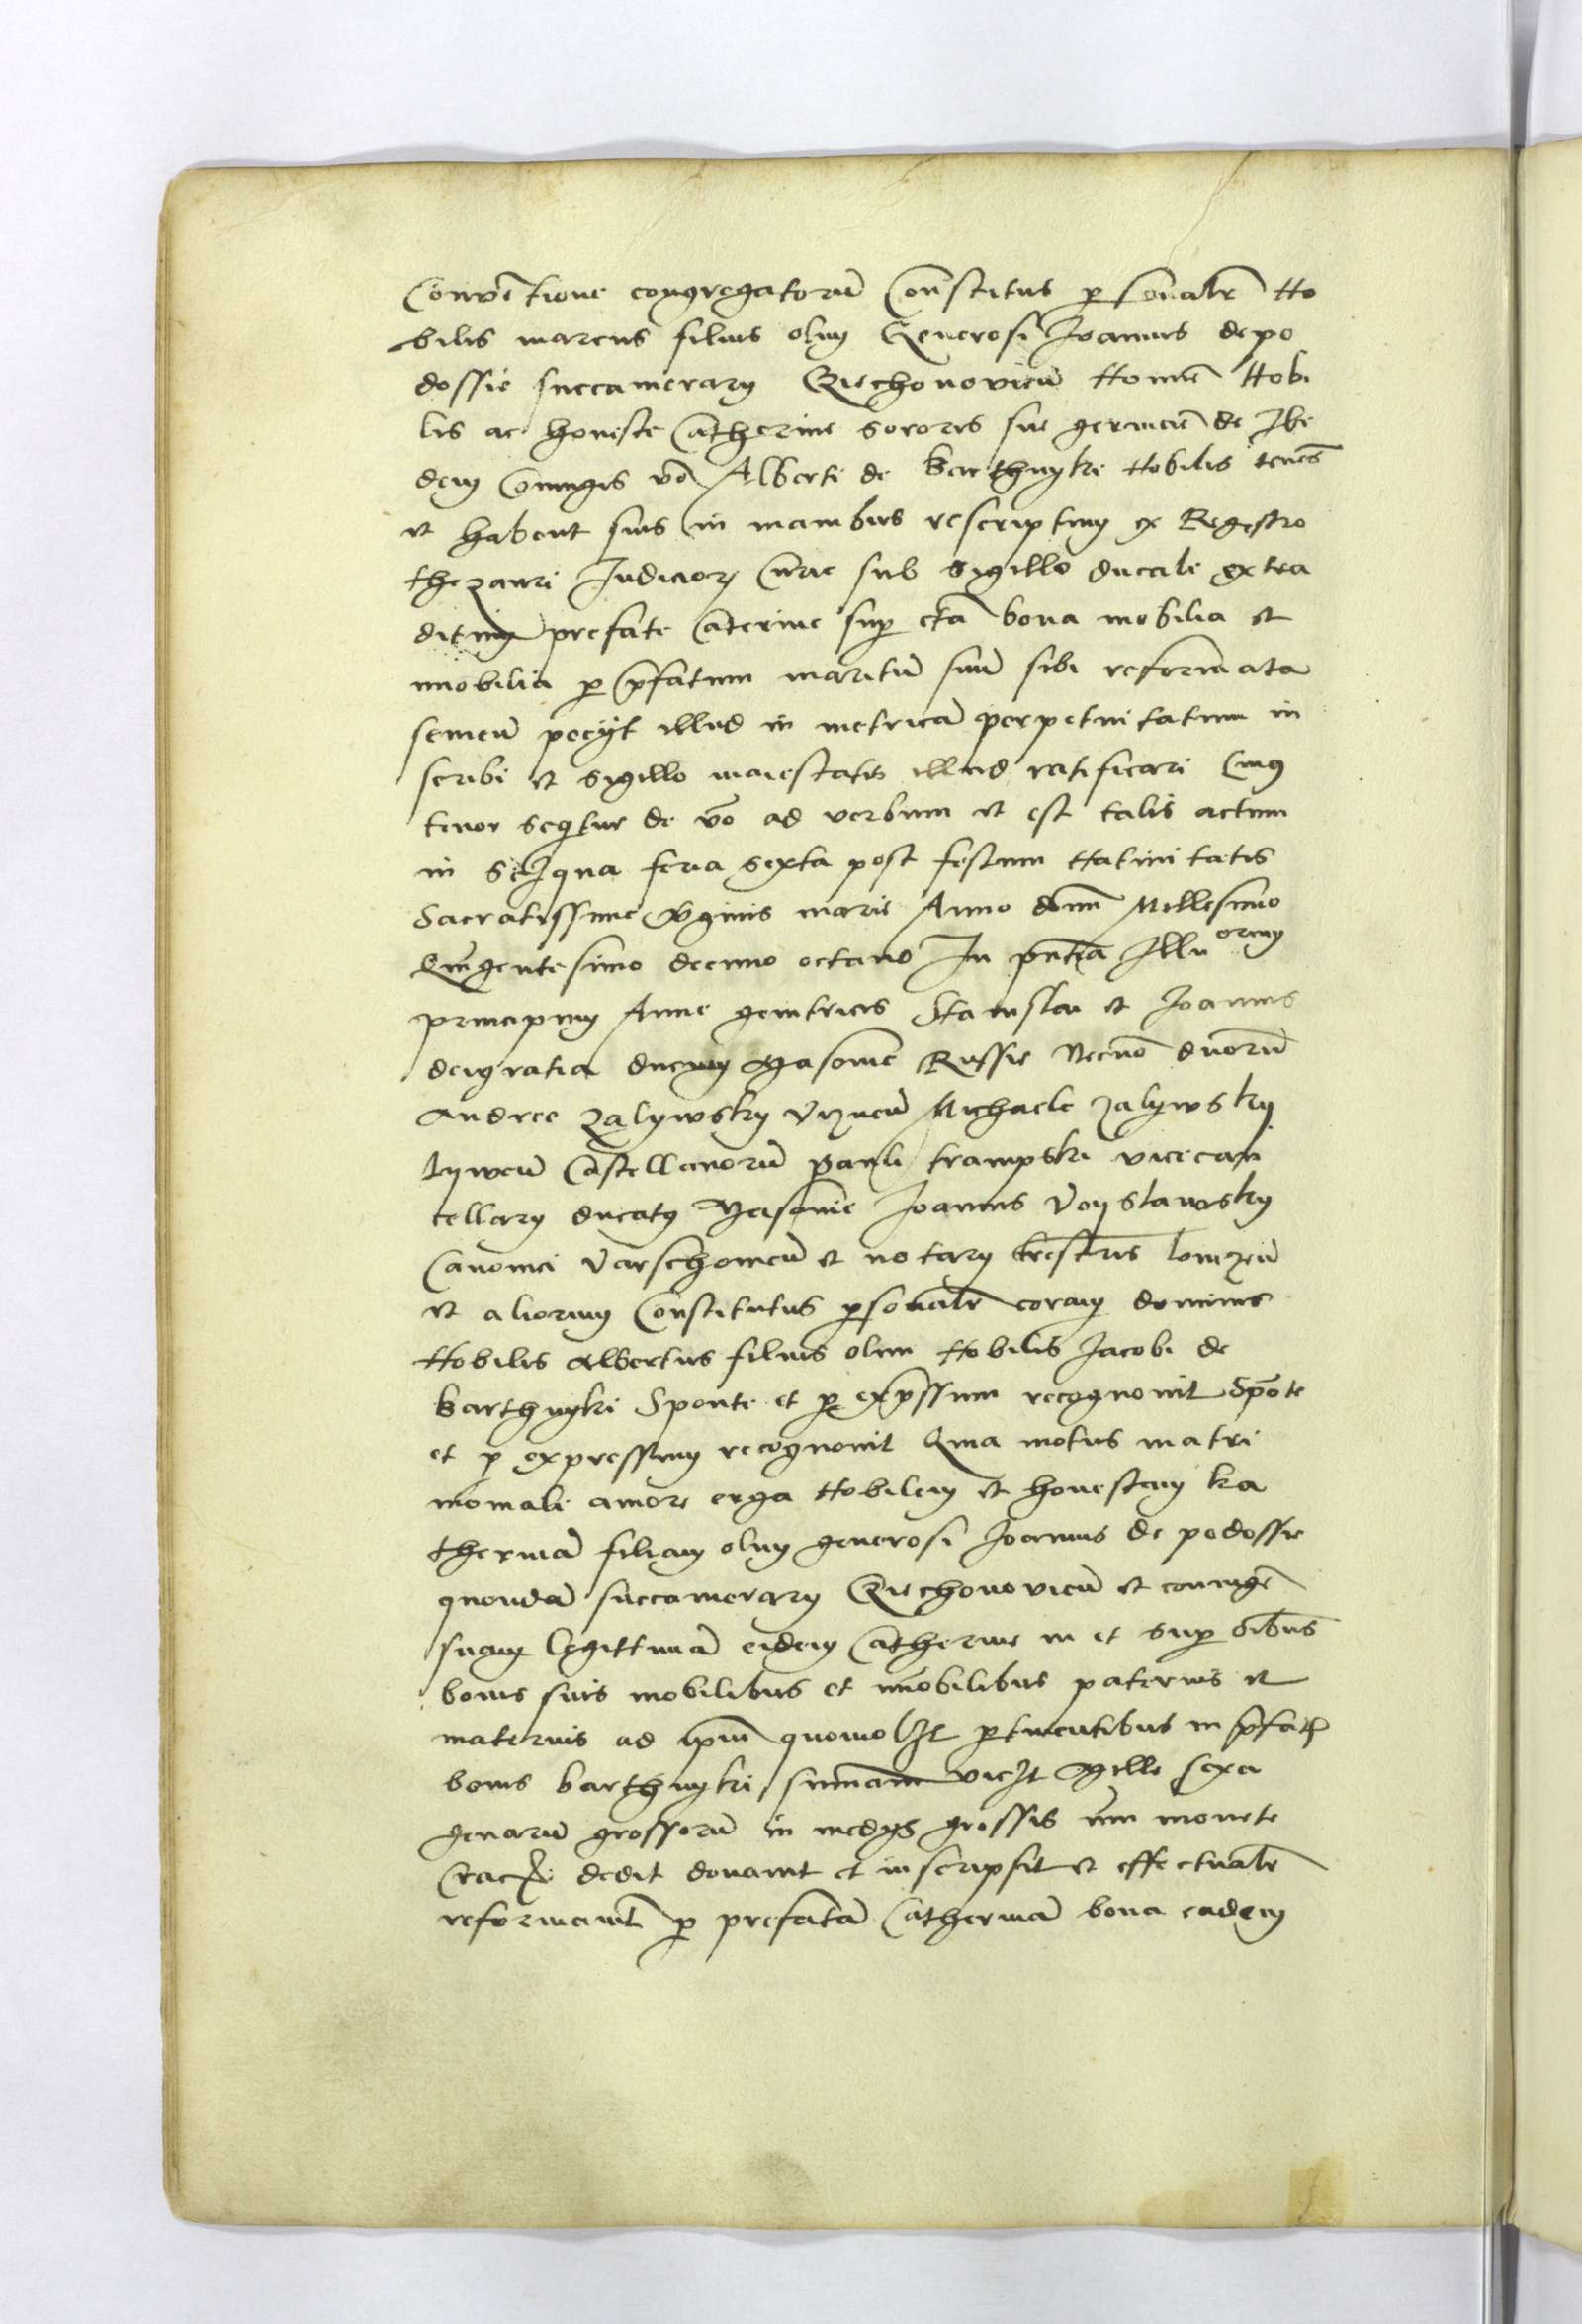 Convētione congregatorū Constitus p̱sonalr̄ No
bilis marcus filius olim Generosi Joannis de po
dossie succamerary Cziechonovieñ Nomīe Nobi
lis ac honeste Catherine sororis sue germāe de Ibi
dem Coniugis vo͞ Alberti de Barthnyki Nobilis tenēs
et habent suis in manibus rescriptum ex Regestro
thezauri Judicior͛ Cur̄ie sub sigillo ducali extra
ditum prefate Caterine sup̱ ctā bona mobilia et
īmobilia p̱ p̄fatum maritū suū sibi reformata
semeū peciyt illud in metricā perpetuitatum in
scribi et sigillo maiestatis illud ratificari Cuiꝰ
tenor seqitur de vo͞ ad verbum et est talis actum
in feria sexta post festum Natiuitatis
Sacratissime v̄ginis marie Anno dom̄ Millesimo
Quīgentesimo decimo octauo In pn̄tia Illu orum
principum Anne genitricis Stanislai et Joannis
dei gratia ducum Masouie Russie Necnō dnorū
Andree Zalywsky Vizneñ Michaele Zalywsky
lyweñ Castellanorū Pauli trampski vicecan
cellary ducatꝰ Masouie Joannis Voyslawsky
Canonici Varschouieñ et notary trēstris lomzeñ
et aliorum Constitutus p̱sonalr̄ coram dominis
Nobilis Albertus filius olim Nobilis Jacobi de
Barthnyki Sponte et p̱ exp̄ssum recognouit Spōte
et p̱ expressum recognouit Quia motus matri
moniali amore erga Nobilem et honestam ka
therinā filiam olim generosi Joannis de podossie
quondā succamerary Cziechonovieñ et coniugē
suam legittimā eidem Catherine in et sup̱ oīb̄us
bonis suis mobilibus et īmobilibus paternis et
maternis ad ip̄m quomolꝫt p̱tinentibus in p̄fatꝭ
bonis Barthnyki summam viclꝫt Mille sexa
genarū grossorū in medys grossis nūi monete
dedit donauit et inscripsit et effectualr̄
reformauit p̱ prefatā Catherinā bona eadem